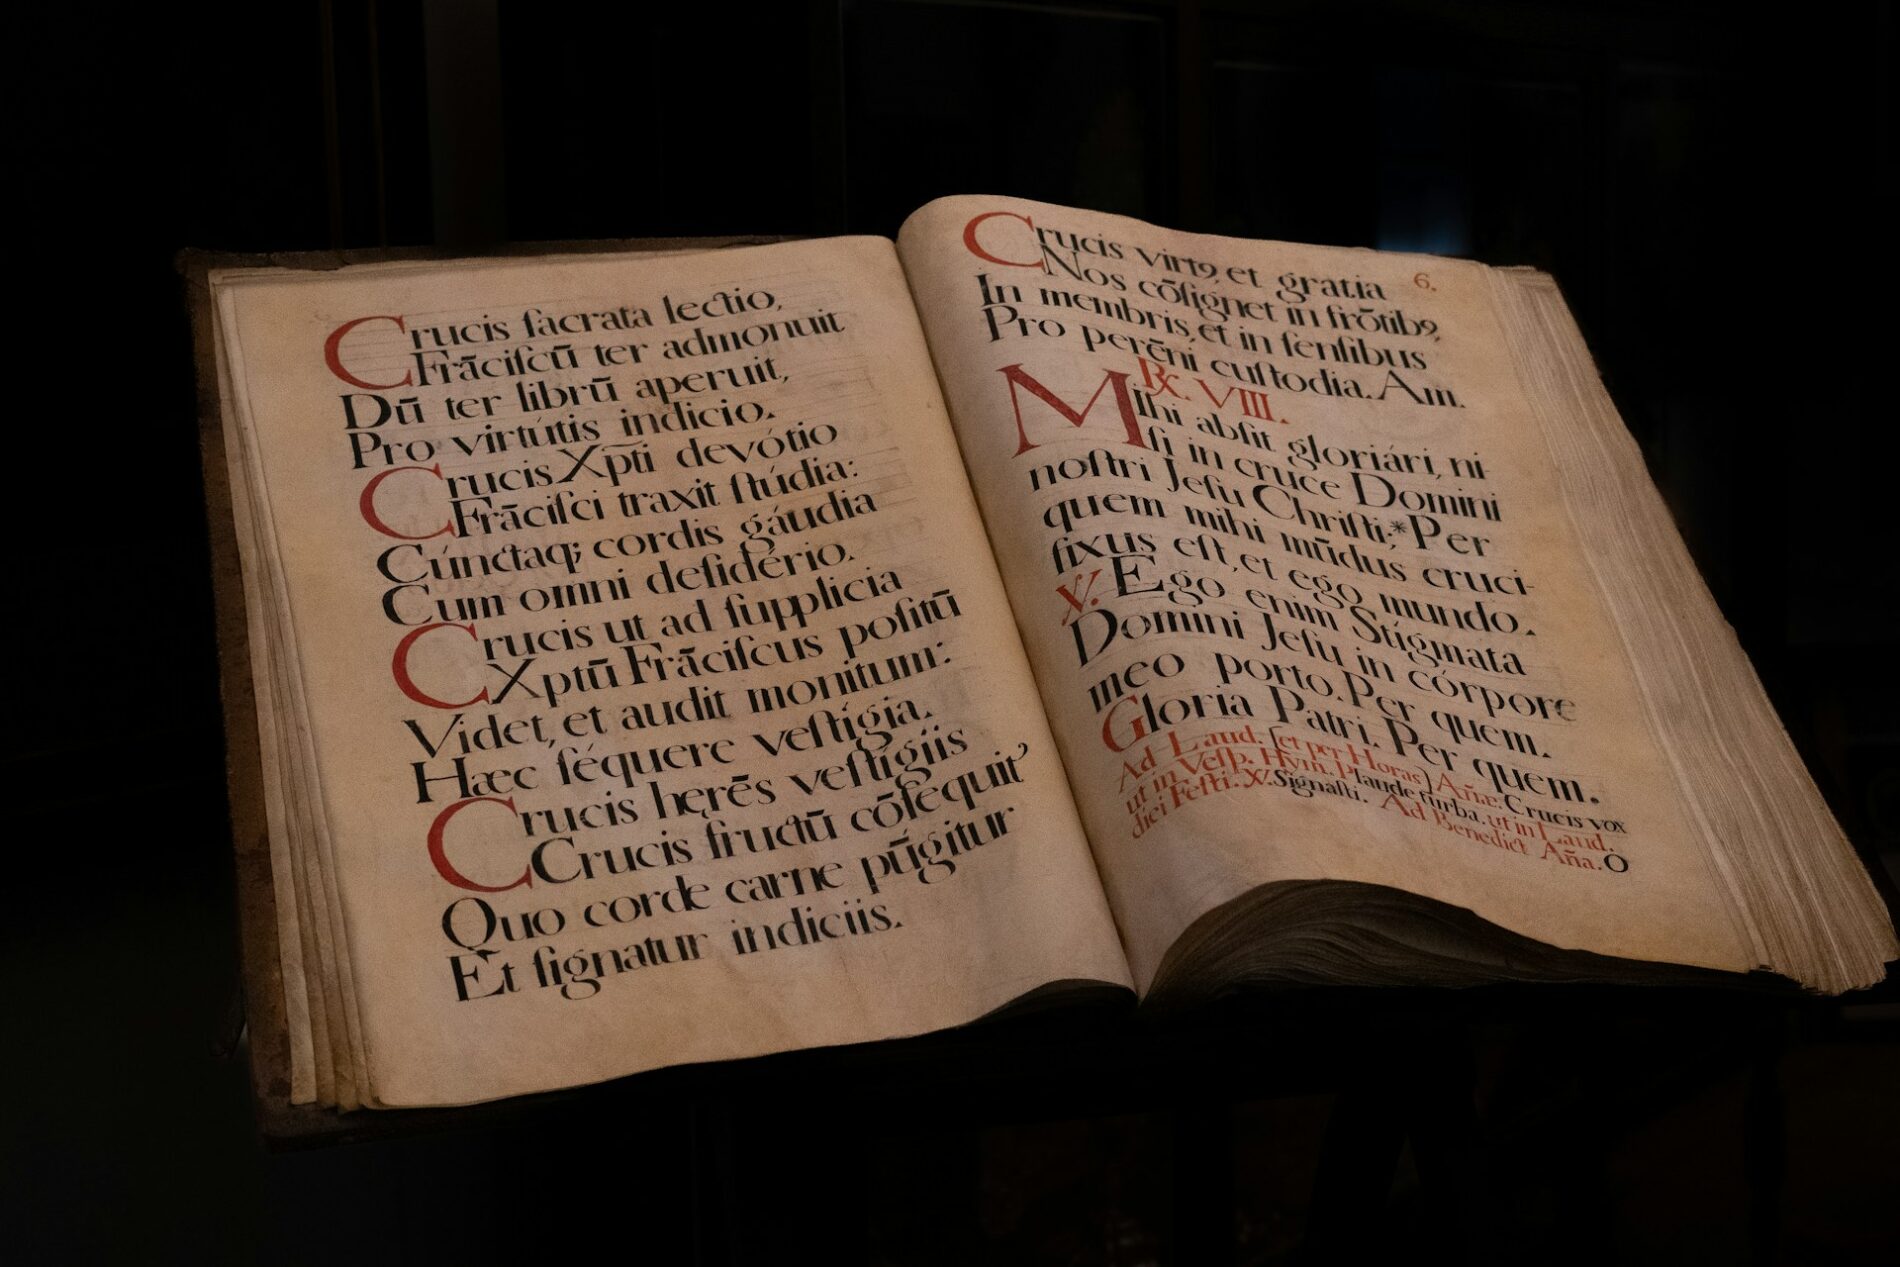 Crucis ſacrata lectio,
Frāciſcū ter admonuit
Dū ter librū aperuit,
Pro virtútis indicio.
Crucis Xp̄ti devótio
Frāciſci traxit ſtúdia:
Cúnctaq; cordis gáudia
Cum omni deſidério.
Crucis ut ad ſupplicia
Xptū Frāciſcus poſitū
Videt, et audit monitum:
Hæc ſéquere veſtígia.
Crucis hęrēs veſtígiis
Crucis fructū cōſequit
Quo corde carne pūgitur
Et ſignatur indiciis.
6.
Crucis virtꝯ, et gratia
Nos cōſignet in frōtibꝯ,
In membris, et in ſenſibus
Pro perēni cuſtodia. Am.
℞. VIII.
Mihi abſit gloriári, ni-
ſi in cruce Domini
noſtri Jeſu Chriſti; * Per
quem mihi mūdus cruci-
fixus eſt, et ego mundo.
℣. Ego enim Stígmata
Domini Jeſu in córpore
meo porto. Per quem.
Gloria Patri. Per quem.
Ad Laud. (et per Horas) Añæ: Crucis vox
ut in Veſp. Hym. Plaude turba. ut in Laud.
dici Feſti. ℣. Signaſti. Ad Benedict Aña. O